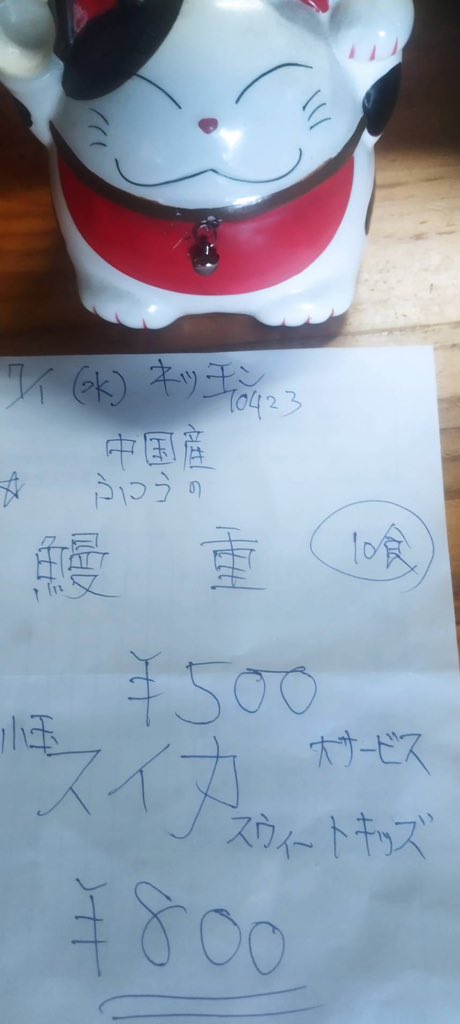 7/1 (水) キッチン
10423
中国産
☆ ふつうの
鰻 重 10食
¥500
小玉
スイカ 大サービス
スウィートキッズ
¥800